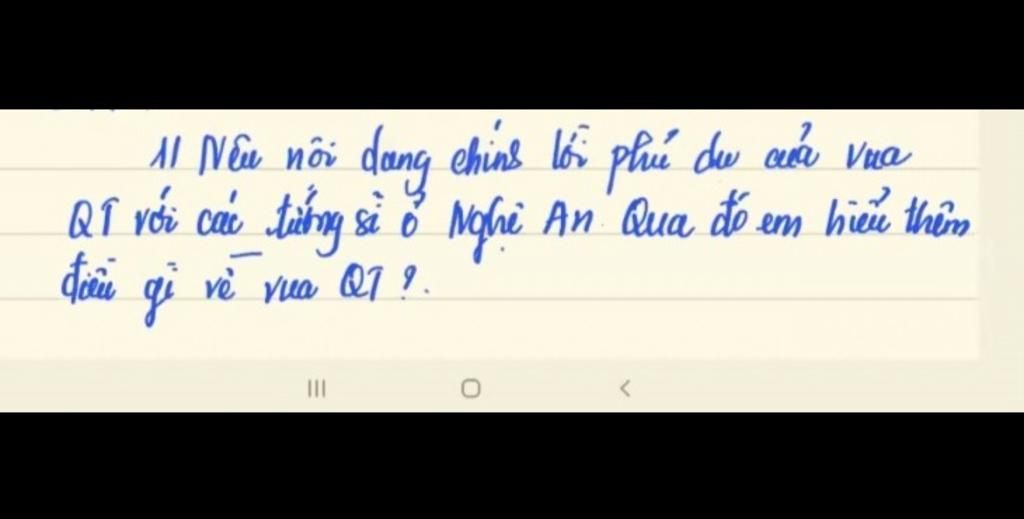 1/ Nêu nôi dung chính lời phủ dụ của vua
QT với các tướng sĩ ở Nghệ An. Qua đó em hiểu thêm
điều gì về vua QT?.